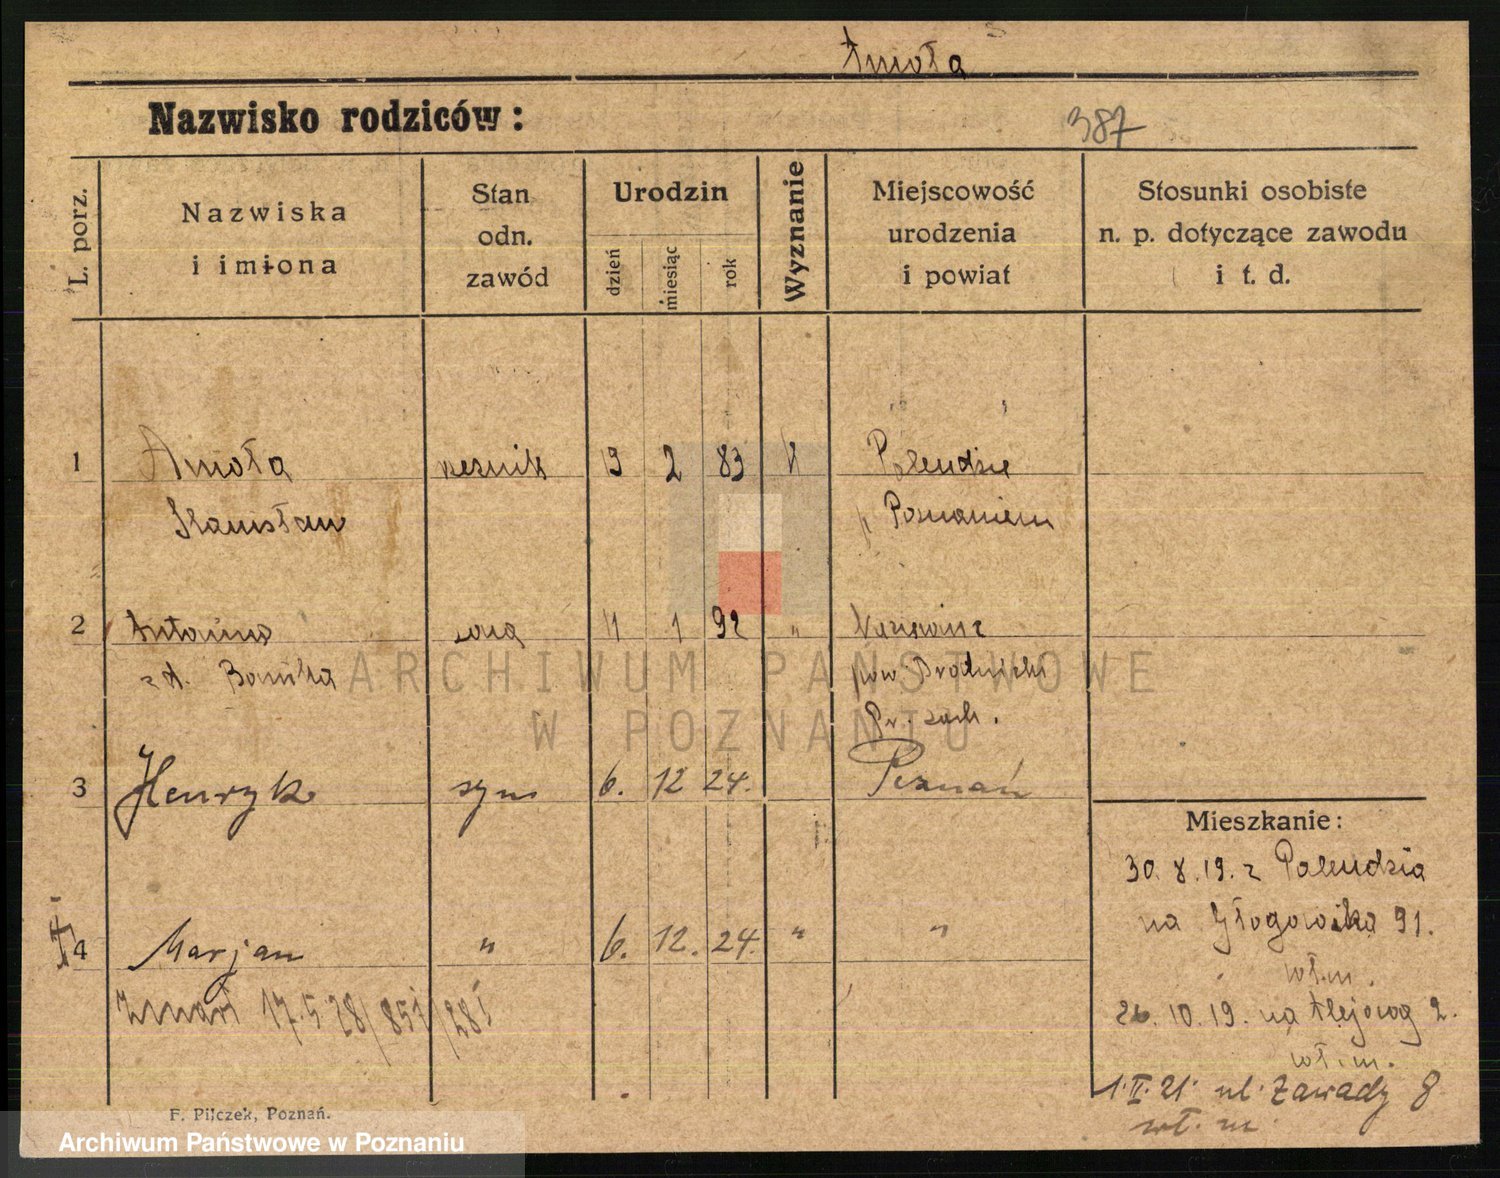 Amoła
Nazwisko rodziców:
387
L. porz.
Nazwiska
i imiona
Stan
odn.
zawód
Urodzin
dzień
miesiąc
rok
Wyznanie
Miejscowość
urodzenia
i powiat
Stosunki osobiste
n. p. dotyczące zawodu
i t. d.
1 Amoła 9 2 83 K Palendzie
Stanisław Poznaniem
2 Antonina żona 11 1 92 "
zd. pow Brodnicki
Pr. zach.
3 Henryk syn 6. 12 24. Poznań
Mieszkanie:
30. 8. 19. z Palendzia
na Głogowska 91.
wł. m.
4 Marjan " 6. 12. 24. " "
Zmarł 17.5.28/851/28
26. 10. 19. na 2.
wł. m.
1. II. 21. ul. Zawady 8
wł. m
F. Pilczek, Poznań.
ARCHIWUM PAŃSTWOWE
W POZNANIU
Archiwum Państwowe w Poznaniu